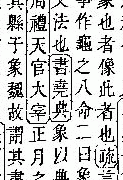 象也者像此者也疏言
事作龜之八命二曰象
文法也書堯典象以典
周禮天官大宰正月之
其縣于象魏故謂其書